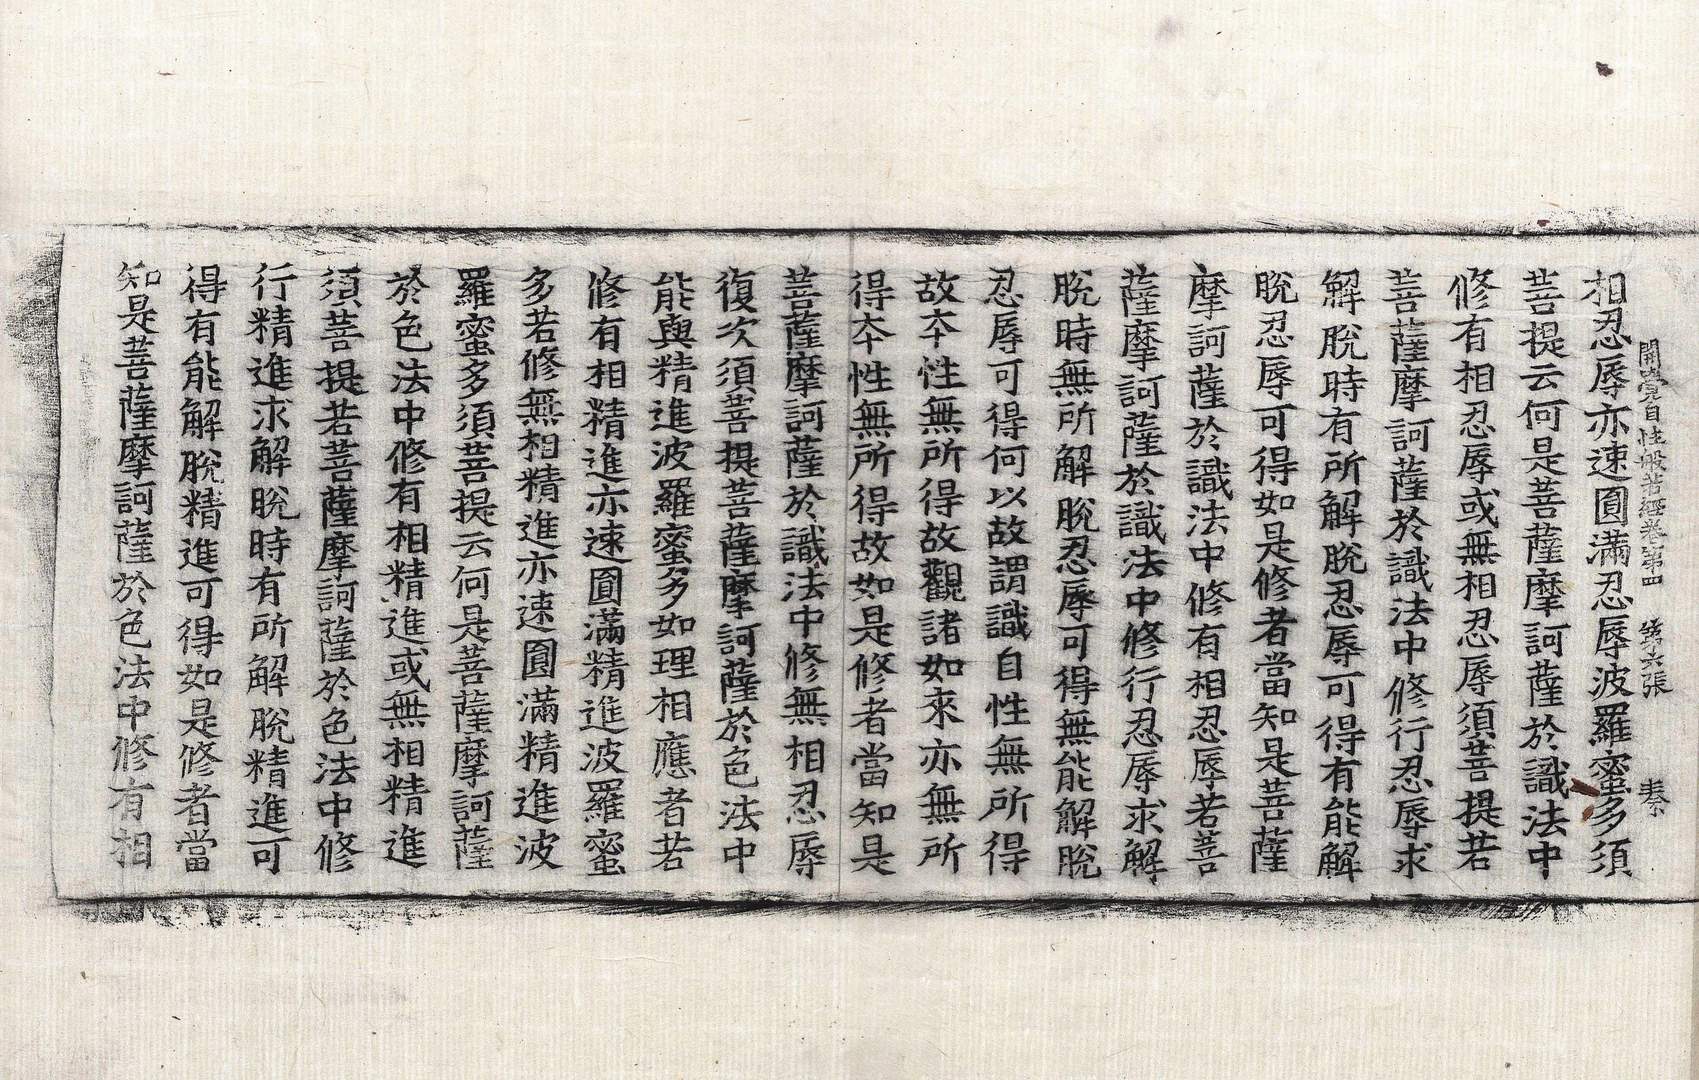 開覺自性般若經卷第四 第六張 秦
相忍辱亦速圓滿忍辱波羅蜜多須
菩提云何是菩薩摩訶薩於識法中
修有相忍辱或無相忍辱須菩提若
菩薩摩訶薩於識法中修行忍辱求
解脫時有所解脫忍辱可得有能解
脫忍辱可得如是修者當知是菩薩
摩訶薩於識法中修有相忍辱若菩
薩摩訶薩於識法中修行忍辱求解
脫時無所解脫忍辱可得無能解脫
忍辱可得何以故謂識自性無所得
故夲性無所得故觀諸如來亦無所
得夲性無所得故如是修者當知是
菩薩摩訶薩於識法中修無相忍辱
復次須菩提菩薩摩訶薩於色法中
能與精進波羅蜜多如理相應者若
修有相精進亦速圓滿精進波羅蜜
多若修無相精進亦速圓滿精進波
羅蜜多須菩提云何是菩薩摩訶薩
於色法中修有相精進或無相精進
須菩提若菩薩摩訶薩於色法中修
行精進求解脫時有所解脫精進可
得有能解脫精進可得如是修者當
知是菩薩摩訶薩於色法中修有相